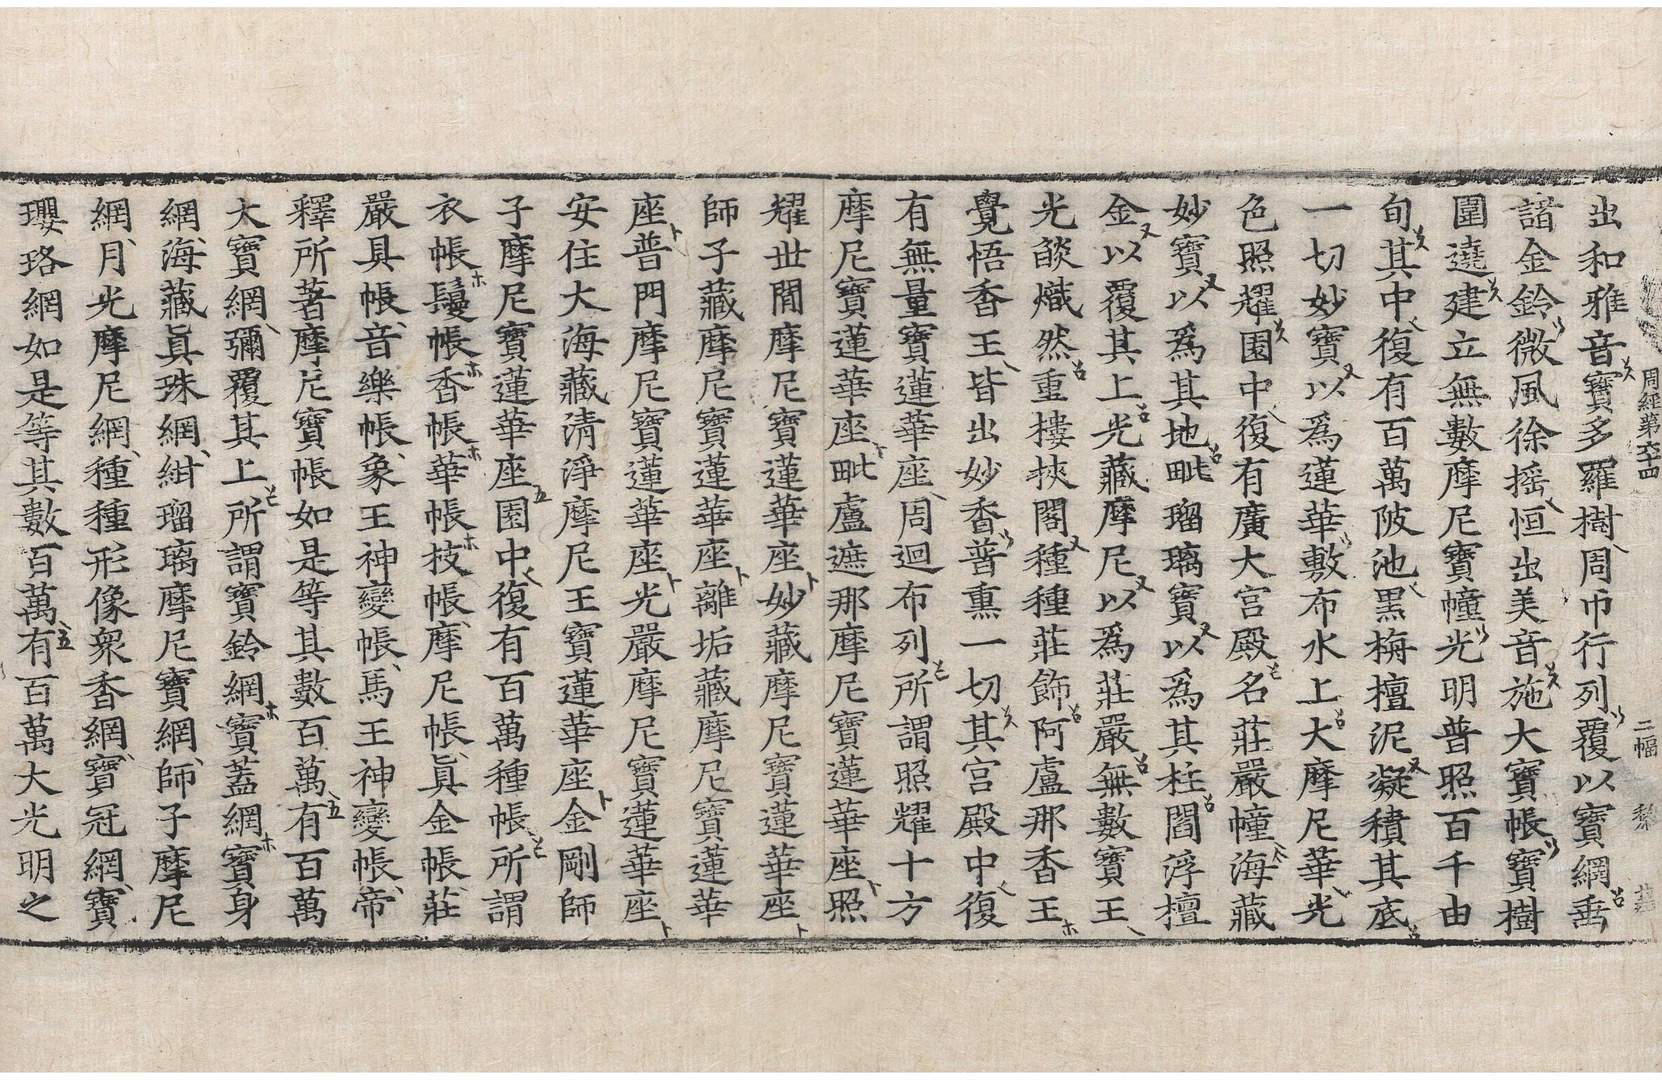 周經第六十四 二幅
出和雅音寶多羅樹周帀行列覆以寶網垂
諸金鈴微風徐搖恒出美音施大寶帳寶樹
圍遶建立無數摩尼寶幢光明普照百千由
旬其中復有百萬陂池黑栴檀泥凝積其底
一切妙寶以爲蓮華敷布水上大摩尼華光
色照耀園中復有廣大宮殿名莊嚴幢海藏
妙寶以爲其地毗瑠璃寶以爲其柱閻浮檀
金以覆其上光藏摩尼以爲莊嚴無數寶王
光燄熾然重樓挾閣種種莊飾阿盧那香王
覺悟香王皆出妙香普熏一切其宮殿中復
有無量寶蓮華座周迴布列所謂照耀十方
摩尼寶蓮華座毗盧遮那摩尼寶蓮華座照
耀世間摩尼寶蓮華座妙藏摩尼寶蓮華座
師子藏摩尼寶蓮華座離垢藏摩尼寶蓮華
座普門摩尼寶蓮華座光嚴摩尼寶蓮華座
安住大海藏清淨摩尼王寶蓮華座金剛師
子摩尼寶蓮華座園中復有百萬種帳所謂
衣帳鬘帳香帳華帳技帳摩尼帳眞金帳莊
嚴具帳音樂帳象王神變帳馬王神變帳帝
釋所著摩尼寶帳如是等其數百萬有百萬
大寶網彌覆其上所謂寶鈴網寶蓋網寶身
網海藏眞珠網紺瑠璃摩尼寶網師子摩尼
網月光摩尼網種種形像衆香網寶冠網寶
瓔珞網如是等其數百萬有百萬大光明之